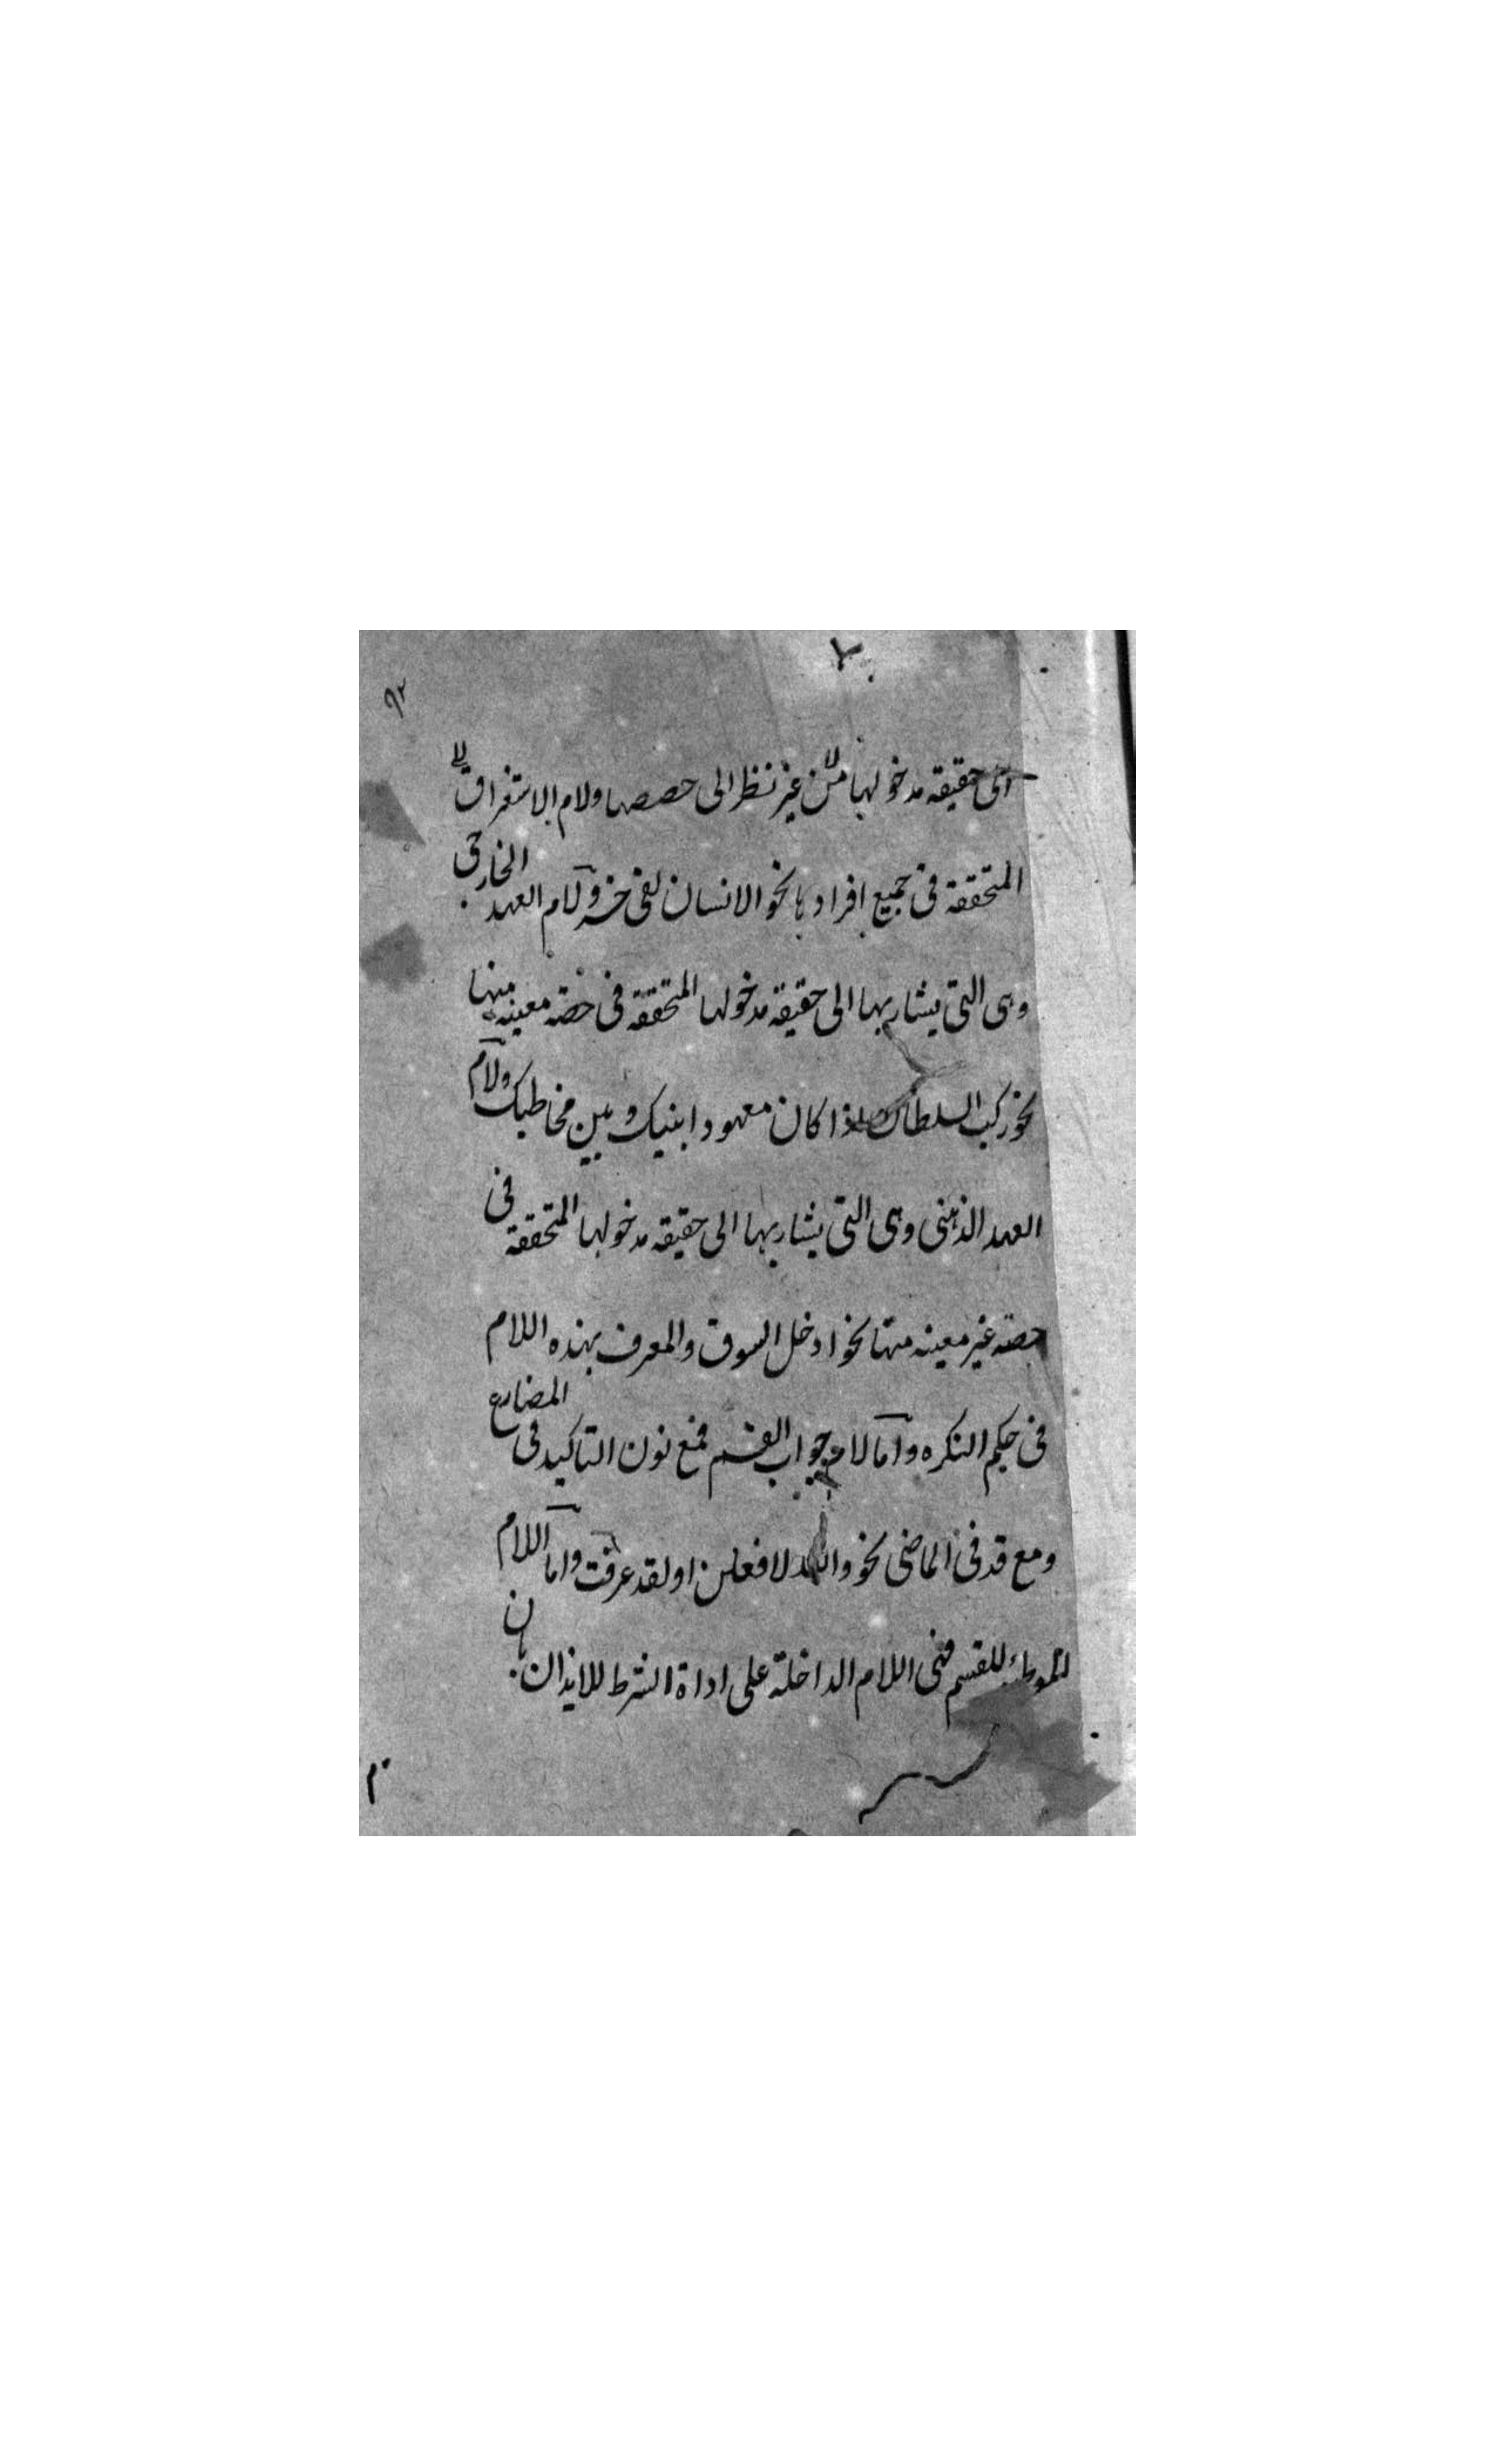 ٩٢
الى حقيقة مدخولها من غير نظر الى حصصها ولام الاستغراق
المتحققة فى جميع افرادها نحو الانسان لفى خسر ولام العهد الخارجى
وهى التى يشار بها الى حقيقة مدخولها المتحققة فى حصة معينه منها
نحو ركب السلطان اذا كان معهودا بينك وبين مخاطبك ولام
العهد الذهنى وهى التى يشار بها الى حقيقة مدخولها المتحققة فى
حصة غير معينه منها نحو ادخل السوق والمعرف بهذه اللام
فى حكم النكره واما لام جواب القسم فمع نون التاكيد فى المضارع
ومع قد فى الماضى نحو والله لافعلن او لقد عرفت واما اللام
للموطئة للقسم فهى اللام الداخلة على اداة الشرط للايذان بان